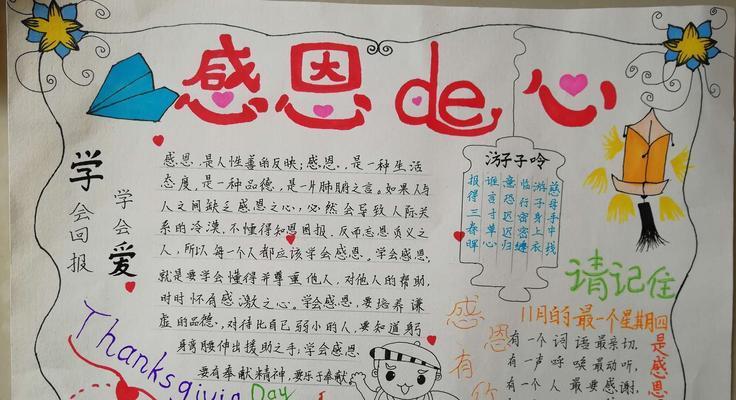 感恩de心
学会回报
学会爱
感恩,是人性善的反映;感恩,是一种生活
态度,是一种品德,是一片肺腑之言。如果人与
人之间缺乏感恩之心,必然会导致人际关
系的冷漠,不懂得知恩图报,反而忘恩负义之
人,所以每一个人都应该学会感恩。学会感恩,
就是要学会懂得并尊重他人,对他人的帮助,
时时怀有感激之心。学会感恩,要培养谦
虚的品德,对待比自己弱小的人,要知道躬
身弯腰伸出援助之手;学会感恩、
要有奉献精神,要乐于奉献
Thanksgivin
Day
游子吟
慈母手中线
游子身上衣
临行密密缝
意恐迟迟归
谁言寸草心
报得三春晖
请记住
11月的最一个星期四
是感恩
感恩
有你
有一个词语最亲切,
有一声呼唤最动听,
有一个人最要感谢,